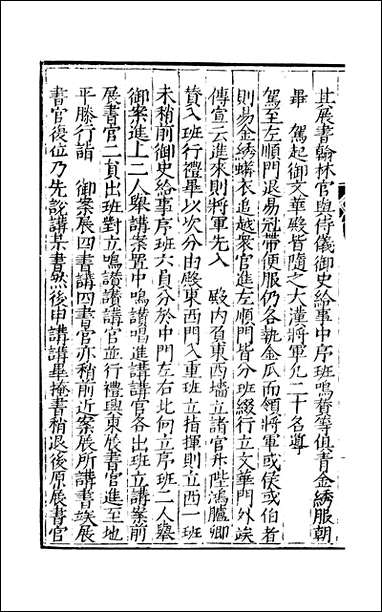 其展書翰林官與侍儀御史給事中序班鳴贊等俱青金綉服朝
畢　駕起御文華殿皆隨之大漢將軍凡二十名導
駕至左順門退易冠帶便服仍各執金瓜而領將軍或侯或伯者
則易金綉蟒衣追越衆官進左順門皆分班綴行立文華門外竢
傳宣云進來則將軍先入　殿內負東西墻立諸官升陛鴻臚卿
賛入班行禮畢以次分由殿東西門入重班立指揮則立西一班
末稍前御史給事序班六員分於中門左右北向立序班二人舉
御案進上二人舉講案置中鳴講唱進講講官各出班立講案前
展書官二員出班對立鳴贊讚講官並行禮興東展書官進至地
平膝行詣　御案展四書講四書官亦稍前近案展所講書竢展
書官復位乃先說講某書然後申講講畢掩書稍退後原展書官